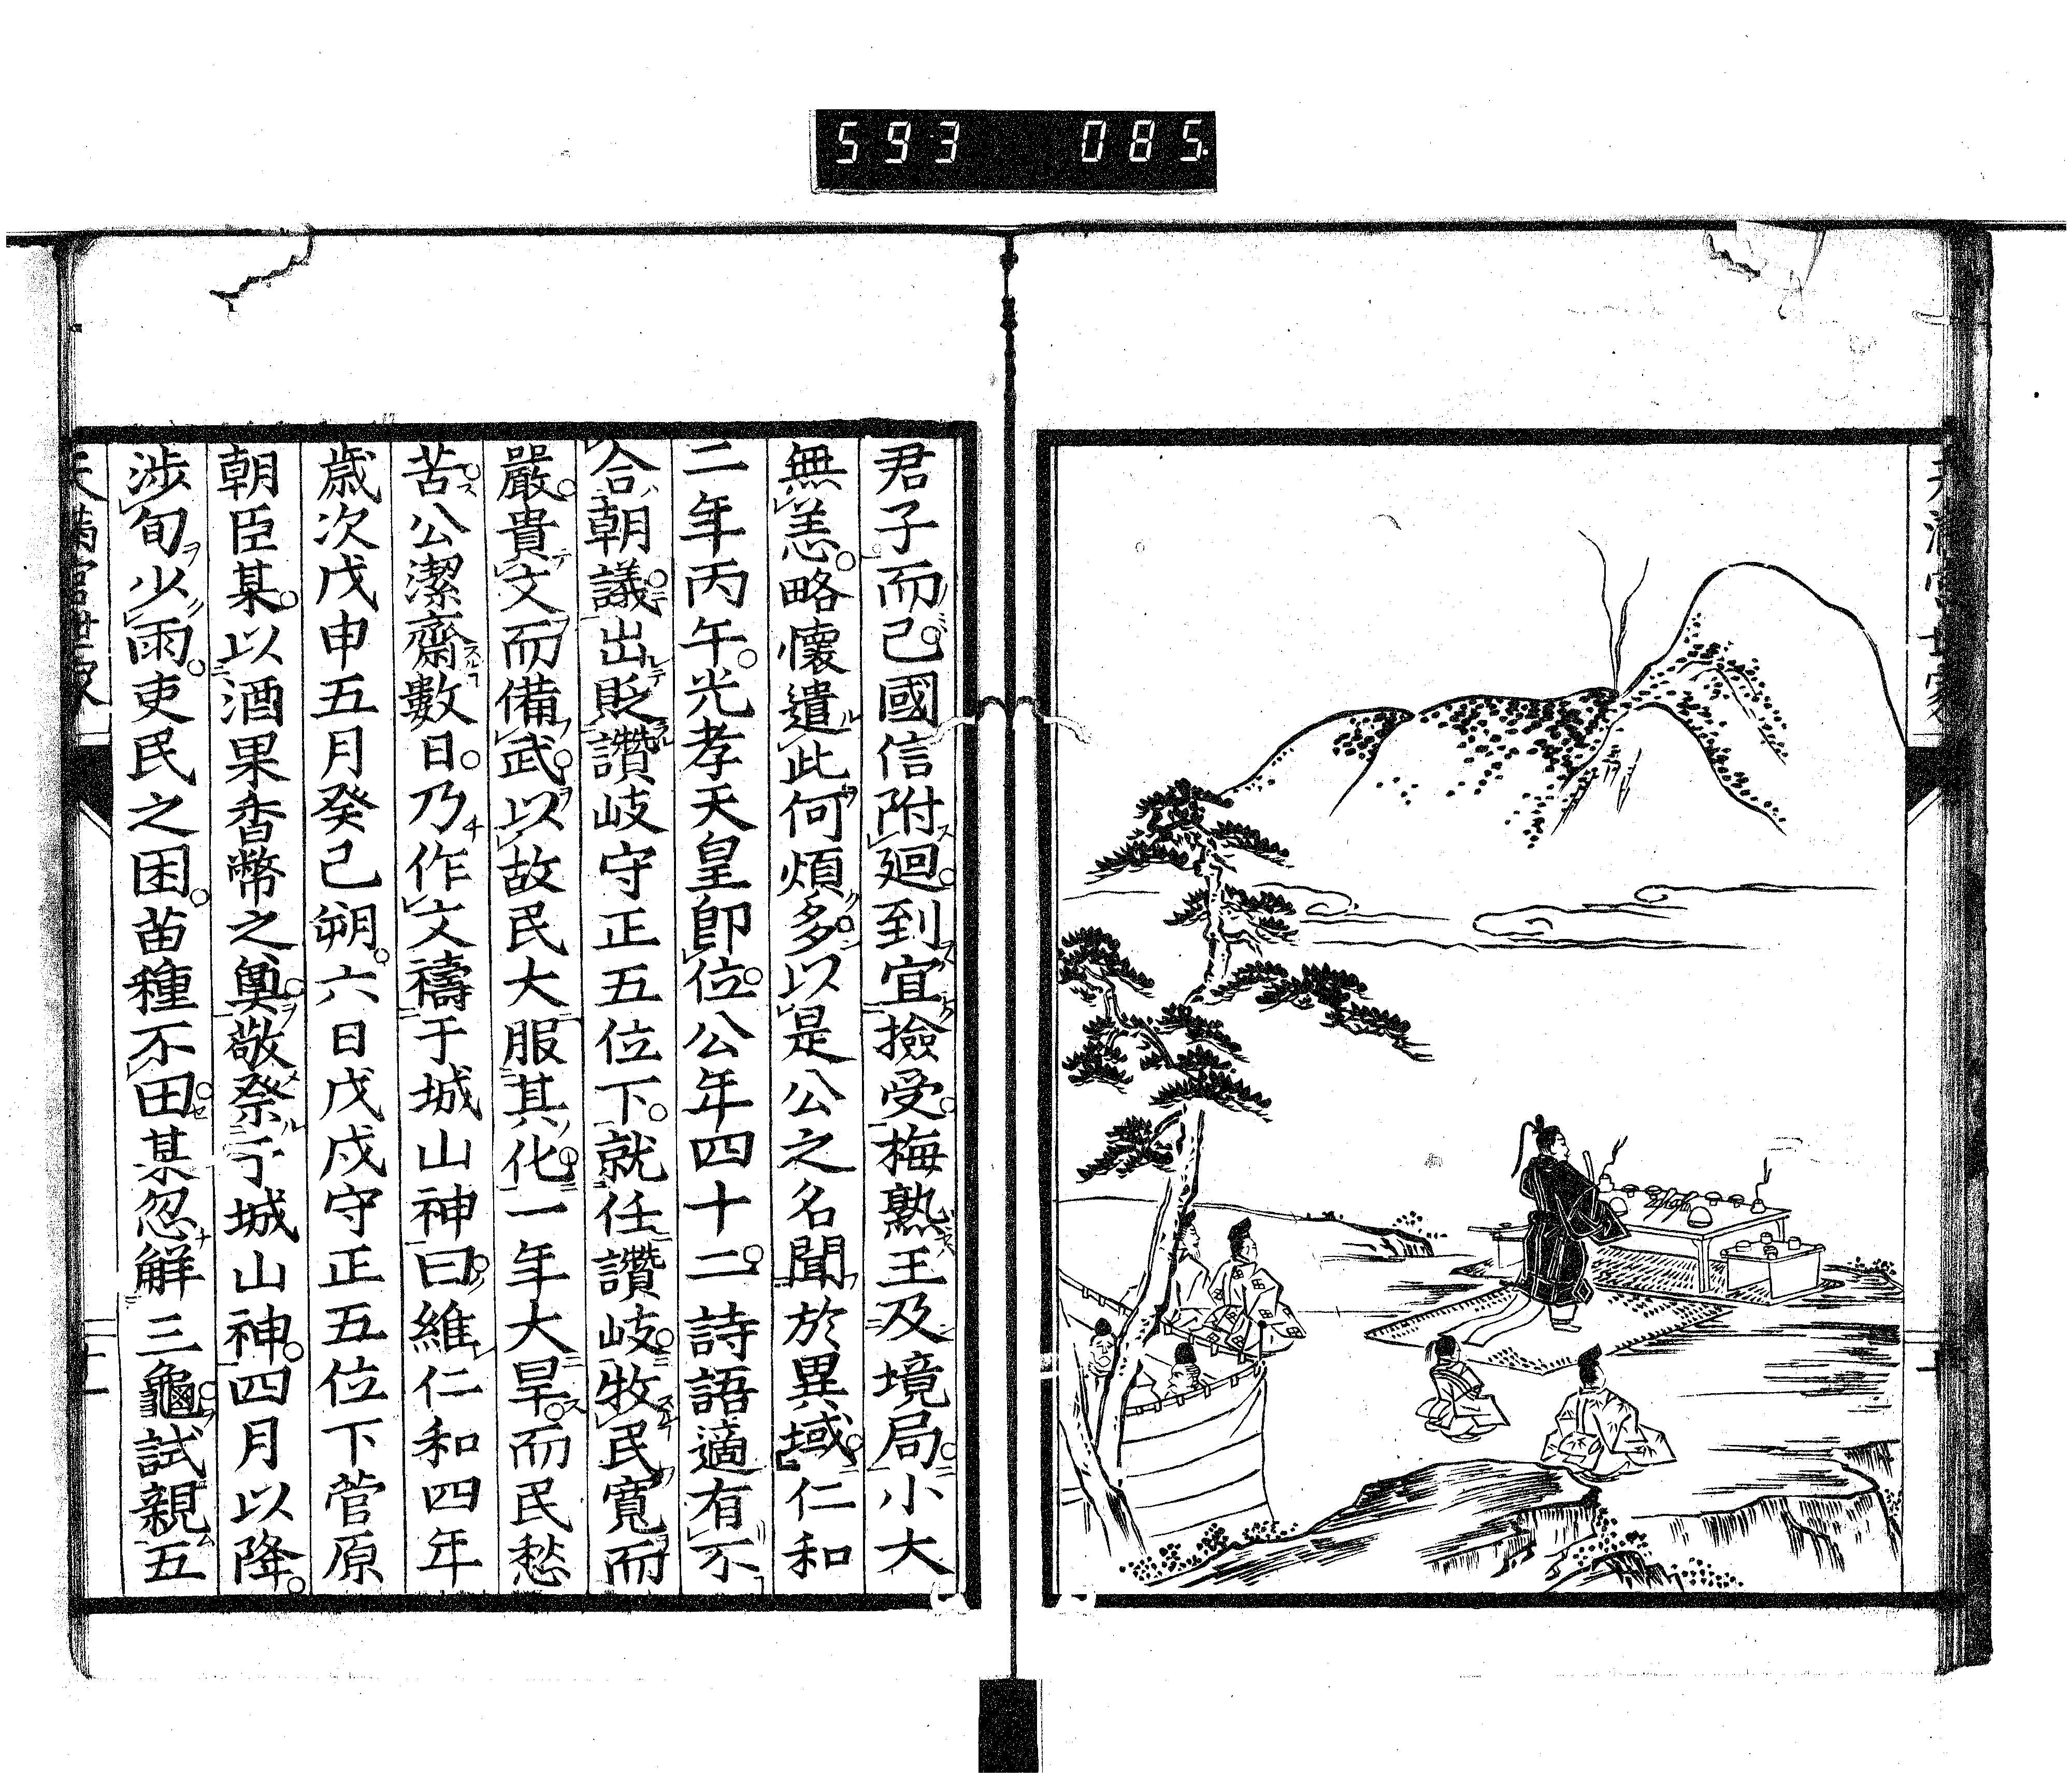 593 085.
君子而已國信附廻到宜撿受梅熟王及境局小大
無恙略懷遣此何煩多以是公之名聞於異域仁和
二年丙午光孝天皇卽位公年四十二詩語適有不
合朝議出貶讚岐守正五位下就任讚岐牧民寬而
嚴貴文而備武以故民大服其化一年大旱而民愁
苦公潔齋數日乃作文禱于城山神曰維仁和四年
歲次戊申五月癸已朔六日戊戌守正五位下菅原
朝臣某以酒果香幣之奠敬祭于城山神四月以降
涉旬少雨吏民之困苗種不田某忽解三龜試親五